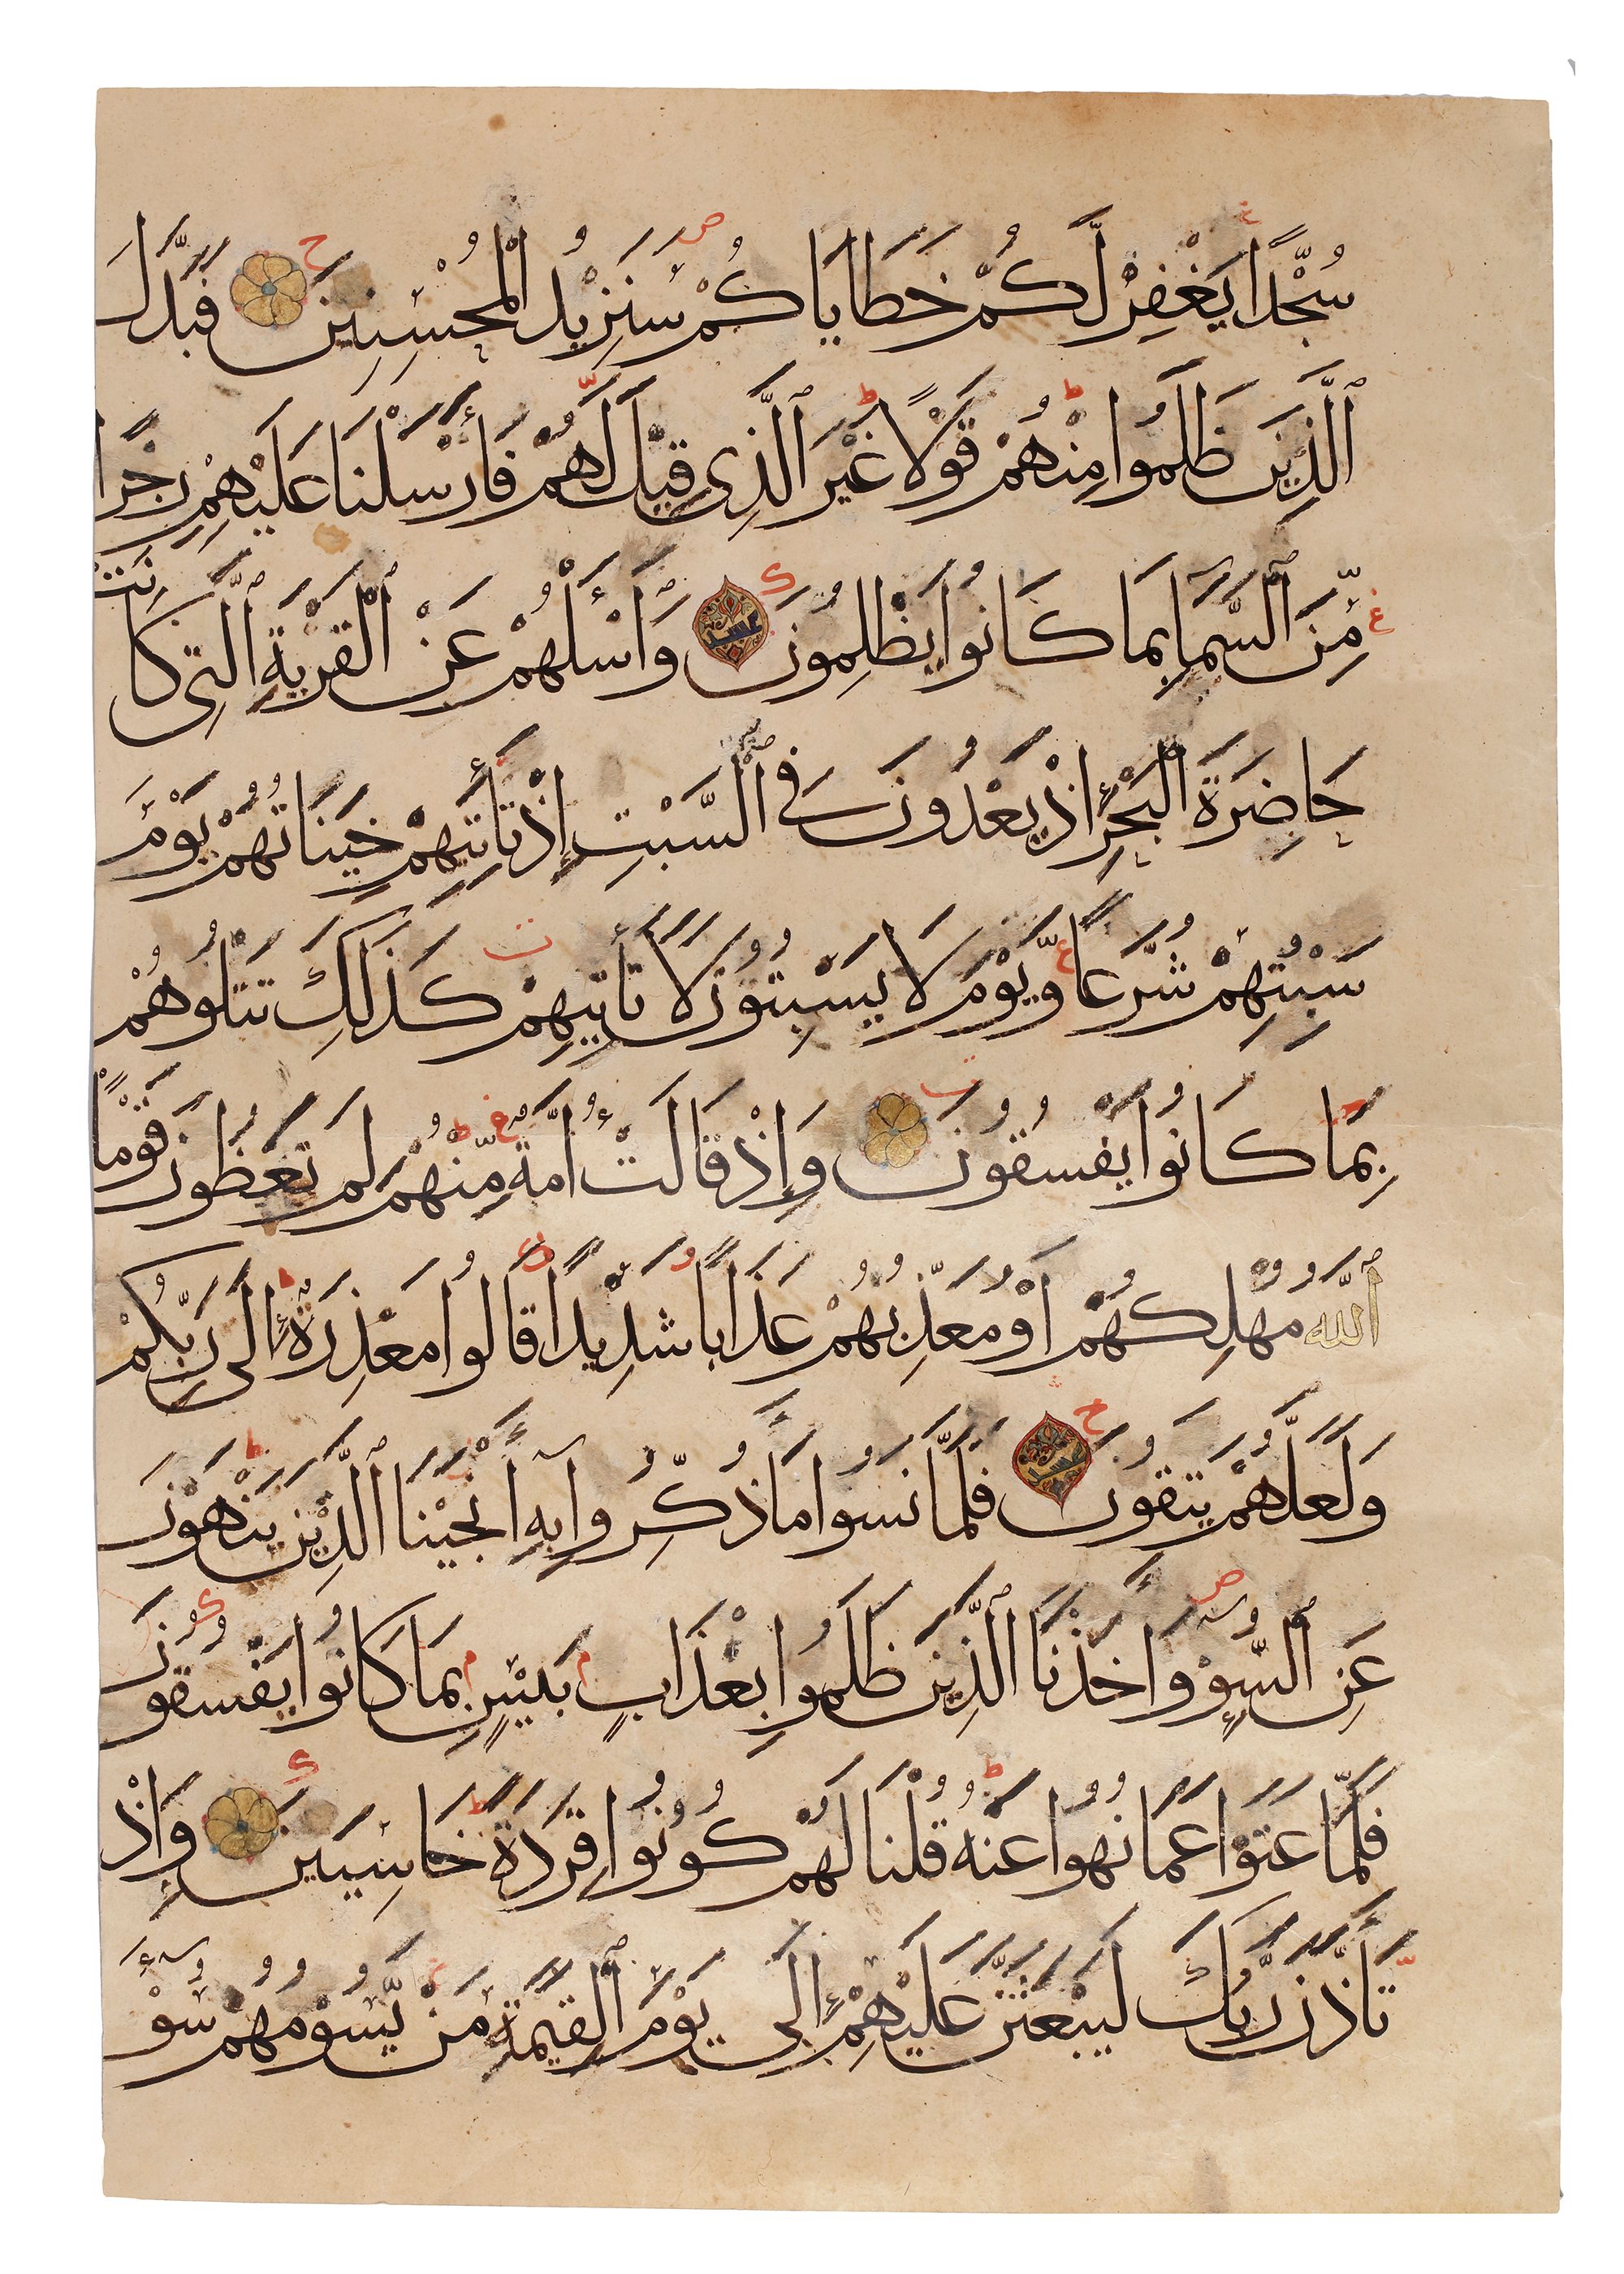 سُجَّدًا يَغْفِرْ لَّكُمْ خَطَايَاكُمْ سَنَزِيْدُ الْمُحْسِنِينَ فَبَدَّلَ
ٱلَّذِينَ ظَلَمُوا مِنْهُمْ قَوْلًا غَيْرَ ٱلَّذِى قِيْلَ لَهُمْ فَأَرْسَلْنَا عَلَيْهِمْ رِجْزًا
مِّنَ ٱلسَّمَآءِ بِمَا كَانُوا يَظْلِمُونَ وَاسْـَٔلْهُمْ عَنْ ٱلْقَرْيَةِ ٱلَّتِى كَانَتْ
حَاضِرَةَ ٱلْبَحْرِ إِذْ يَعْدُونَ فِى ٱلسَّبْتِ إِذْ تَأْتِيهِمْ حِيتَانُهُمْ يَوْمَ
سَبْتِهِمْ شُرَّعًا وَّيَوْمَ لَا يَسْبِتُونَ لَا تَأْتِيهِمْ كَذَلِكَ نَبْلُوهُمْ
بِمَا كَانُوا يَفْسُقُونَ وَإِذْ قَالَتْ أُمَّةٌ مِّنْهُمْ لِمَ تَعِظُونَ قَوْمًا
ٱللَّهُ مُهْلِكُهُمْ أَوْ مُعَذِّبُهُمْ عَذَابًا شَدِيدًا قَالُوا مَعْذِرَةً إِلَى رَبِّكُمْ
وَلَعَلَّهُمْ يَتَّقُونَ فَلَمَّا نَسُوا مَا ذُكِّرُوا بِهِ أَنْجَيْنَا ٱلَّذِينَ يَنْهَوْنَ
عَنِ ٱلسُّوٓءِ وَأَخَذْنَا ٱلَّذِينَ ظَلَمُوا بِعَذَابٍ بَئِيْسٍ بِمَا كَانُوا يَفْسُقُونَ
فَلَمَّا عَتَوْا عَمَّا نُهُوا عَنْهُ قُلْنَا لَهُمْ كُونُوا قِرَدَةً خَاسِئِينَ وَإِذْ
تَأَذَّنَ رَبُّكَ لَيَبْعَثَنَّ عَلَيْهِمْ إِلَى يَوْمِ ٱلْقِيَمَةِ مَنْ يَّسُوْمُهُمْ سُوْٓءَ